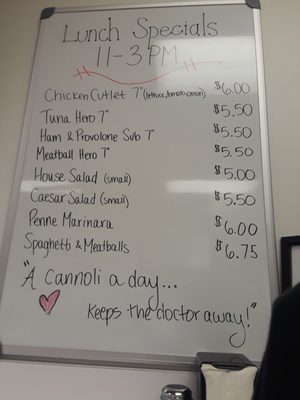 Lunch Specials
11-3 PM
Chicken Cutlet 7" (lettuce/tomato/onion) $6.00
Tuna Hero 7" $5.50
Ham & Provolone Sub 7" $5.50
Meatball Hero 7" $5.50
House Salad (small) $5.00
Caesar Salad (small) $5.50
Penne Marinara $6.00
Spaghetti & Meatballs $6.75
"A Cannoli a day...
keeps the doctor away!"